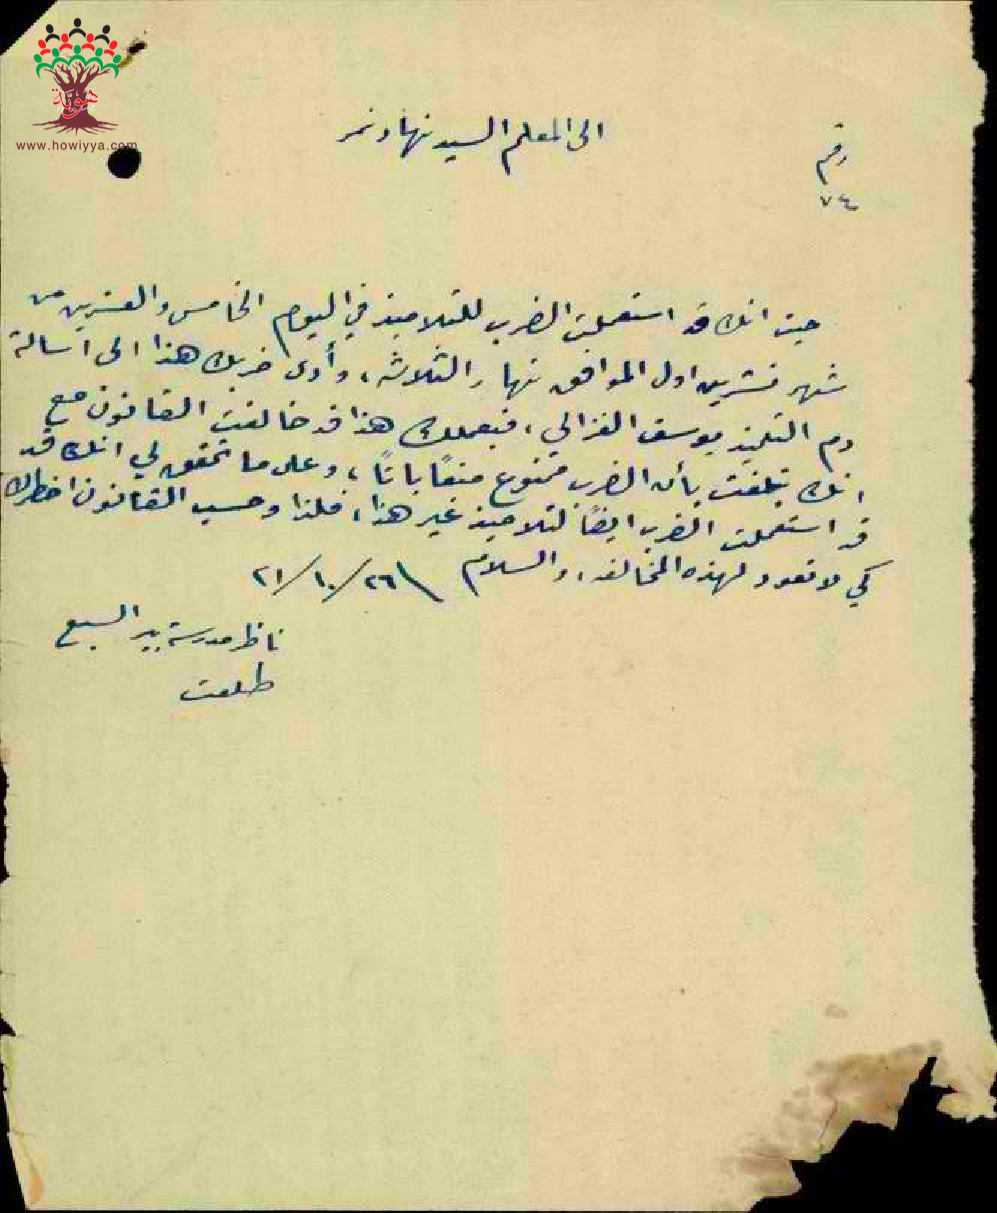 هوية
www.howiyya.com
الى المعلم السيد نهاد نمر
رقم
٧٤
حيث انك قد استعملت الضرب للتلاميذ في اليوم الخامس والعشرين من
شهر تشرين اول الموافق نهار الثلاثة، وأدى ضربك هذا الى اسالة
دم التلميذ يوسف الغزالي، فبعملك هذا قد خالفت القانون مع
انك تبلغت بأن الضرب ممنوع منعاً باتاً، وعلى ما تحقق لي انك قد
قد استعملت الضرب ايضاً لتلاميذ غير هذا، فلذا وحسب القانون اخطرك
كي لا تعود لهذه المخالفة، والسلام ٢٦/١٠/٢١
ناظر مدرسة بير السبع
طلعت